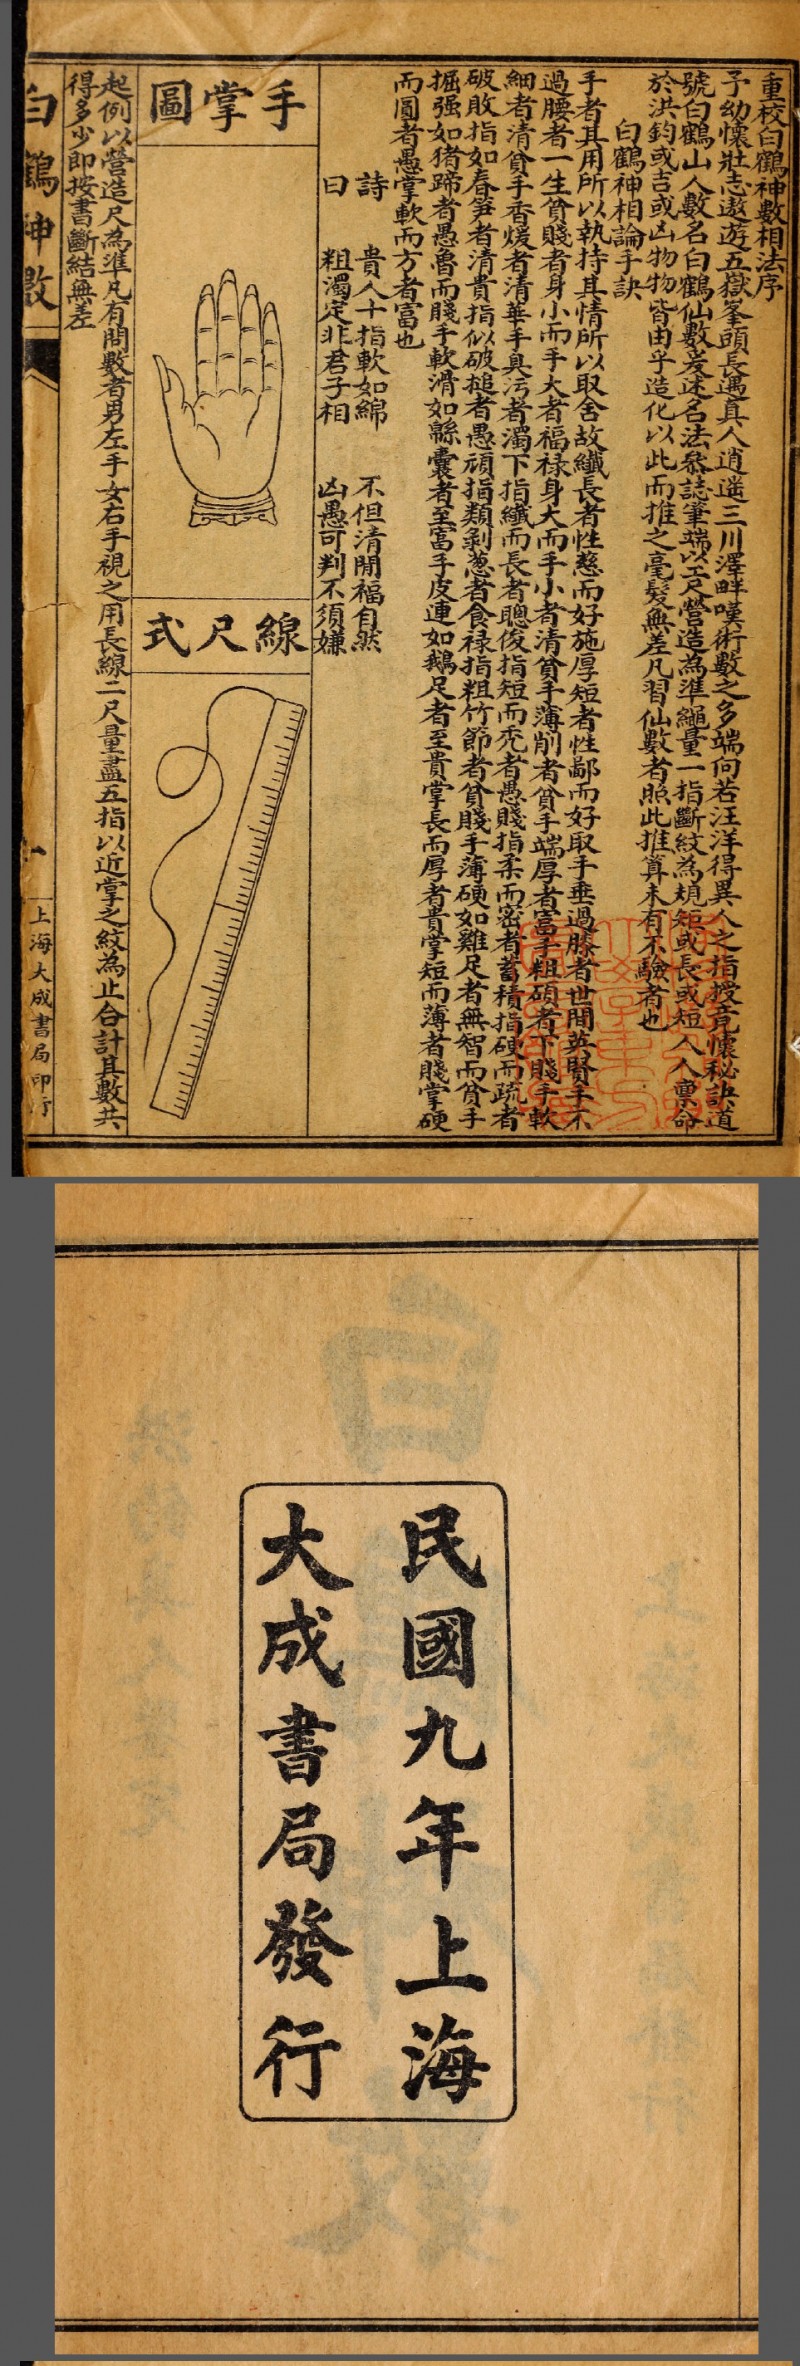 重校白鶴神數相法序
予幼懷壯志遨遊五嶽峯頭長遇真人逍遙三川澤畔嘆術數之多端何若汪洋得異人之指授竟懷秘訣道
號白鶴山人數名白鶴仙數爰述名法叅誌筆端以工尺營造為準繩量一指斷紋為規矩或長或短人人稟命
於洪鈞或吉或凶物物皆由乎造化以此而推之毫髮無差凡習仙數者照此推算未有不驗者也
白鶴神相論手訣
手者其用所以執持其情所以取舍故纖長者性慈而好施厚短者性鄙而好取手垂過膝者世間英賢手不
過腰者一生貧賤者身小而手大者福祿身大而手小者清貧手薄削者貧手端厚者富手粗硬者下賤手軟
細者清貧手香煖者清華手臭污者濁下指纖而長者聰俊指短而禿者愚賤指柔而密者蓄積指硬而疏者
破敗指如春笋者清貴指似破槌者愚頑指類剥葱者食祿指粗竹節者貧賤手薄硬如雞足者無智而貧手
掘强如猪蹄者愚魯而賤手軟滑如綿囊者至富手皮連如鵝足者至貴掌長而厚者貴掌短而薄者賤掌硬
而圓者愚掌軟而方者富也
詩曰
貴人十指軟如綿 不但清閒福自然
粗濁定非君子相 凶愚可判不須嫌
手掌圖
線尺式
起例以營造尺為準凡有問數者男左手女右手視之用長線二尺量盡五指以近掌之紋為止合計其數共
得多少即按書斷結無差
白鶴神數
上海大成書局印行
民國九年上海
大成書局發行